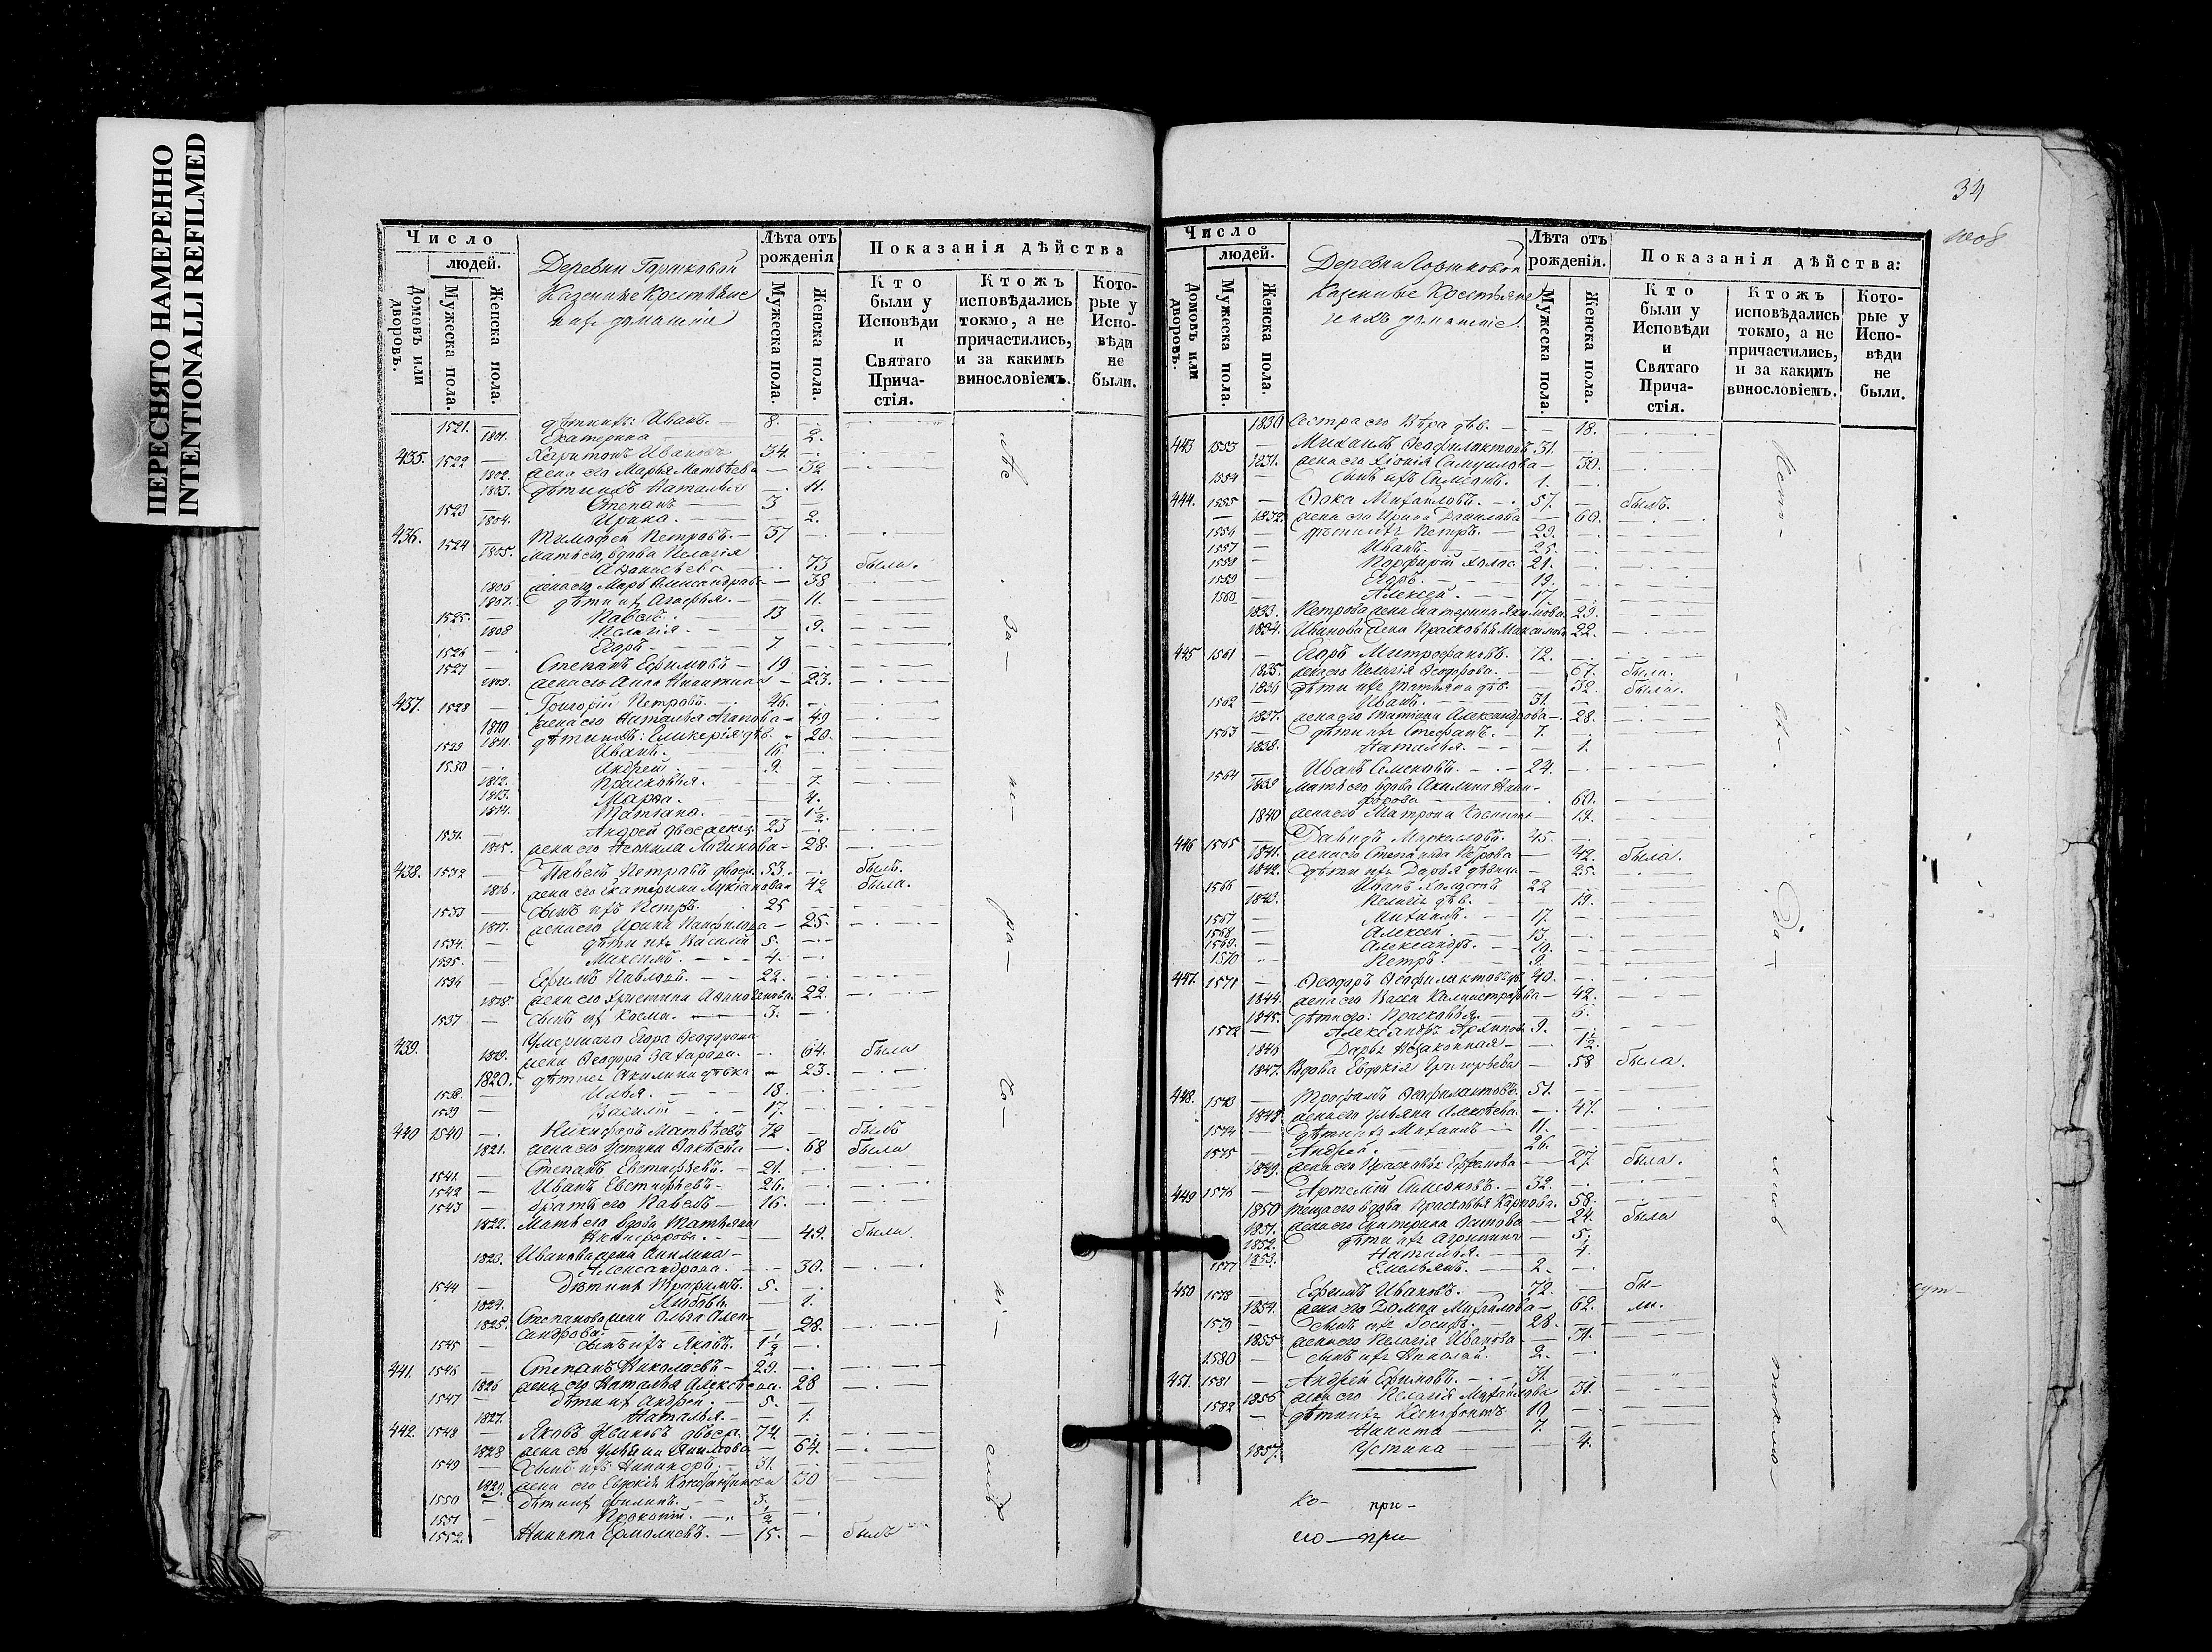 ПЕРЕСНЯТО НАМЕРЕННО
INTENTIONALLI REFILMED
Число
людей.
Домовъ или дворовъ.
Мужеска пола.
Женска пола.
Деревни
Казенные Крестьяне
и ихъ домашнiе
Лѣта отъ рожденія
Мужеска пола.
Женска пола.
Показанія дѣйства
Кто были у Исповѣди и Святаго Прича- стія.
Ктожъ исповѣдались токмо, а не причастились, и за какимъ винословіемъ.
Кото- рые у Испо- вѣди не были.
1521. — дѣти ихъ: Иванъ. — 8.
1801. Екатерина — 2.
435. 1522 — Харитонъ Ивановъ 34.
1802. жена его Марья Матвѣева — 32
1803. дѣти ихъ Наталья — 11.
1523 — Степанъ — 3
1804. Ирина. — 2.
436. 1524 Тимофей Петровъ. — 37
1805. Мать его, вдова Пелагія
Аѳанасьева — 73 была.
1806 жена его Марья Александрова — 38
1807. дѣти ихъ Агафья. — 11.
1525. — Павелъ. — 13
1808 Пелагія. — 9.
1526 — Егоръ — 7.
1527 — Степанъ Ефимовъ — 19
1809. жена его Анна Никитина — 23.
437. 1528 — Григорій Петровъ. — 46.
1810 жена его Наталья Агапова — 49
1811. дѣти ихъ: Гликерія дѣв. — 20.
1529 Иванъ. — 16
1530 — Андрей — 9.
1812. Прасковья. — 7.
1813. Марѳа. — 4.
1814. Татіана. — 1½.
1531. — Андрей 23
1815. жена его Неонила — 28.
438. 1532 — Павелъ Петровъ 53. былъ.
1816. жена его Екатерина Лукіанова 42 была.
1533 — сынъ ихъ Петръ. 25
1817. жена его Ирина Панфилова — 25.
1534. — дѣти ихъ Василій 5.
1535. — Максимъ. — 4.
1536 — Ефимъ Павловъ. — 22.
1818. жена его Христина 22.
1537 — сынъ ихъ Косма. — 3.
439. Умершаго Егора Ѳеодорова
1819. жена Ѳеодора Захарова. — 64. была
1820. дѣти ихъ Акилина дѣвка — 23.
1538. — Илья. — 18.
1539 — Василій — 17.
440 1540 — Никифоръ Матвѣевъ 72 — былъ
1821. жена его Устина — 68 была
1541. — Степанъ Евстифѣевъ. — 21.
1542 — Иванъ Евстифѣевъ — 26.
1543 — братъ его Павелъ — 16.
1822. Мать его вдова Татьяна
Никифорова. — 49. была.
1823. Иванова жена Акилина —
Александрова. — 30.
1544 — Дѣти ихъ Трофимъ. 5.
1824. Любовь. — 1.
1825. Степанова жена Ольга Алек-
сандрова. — 28.
1545 — сынъ ихъ Яковъ. 1½
441. 1546 — Степанъ Николаевъ — 29.
1826 жена его Наталья Алексѣева. 28
1547 — дѣти ихъ Андрей. — 5.
1827. Наталья. — 1.
442. 1548 — Яковъ Ивановъ 74.
1828 жена его Ульяна — 64.
1549 — сынъ ихъ Никаноръ. — 31.
1829. жена его Евдокія Константинова 30
1550 — дѣти ихъ Филипъ. 3.
1551 — Прокопій. — ½
1552. Никита Ермолаевъ. — 15. — былъ
34
Число
людей.
Домовъ или дворовъ.
Мужеска пола.
Женска пола.
Деревни
Казенные Крестьяне
и ихъ домашніе.
Лѣта отъ рожденія.
Мужеска пола.
Женска пола.
Показанія дѣйства:
Кто были у Исповѣди и Святаго Прича- стія.
Ктожъ исповѣдались токмо, а не причастились, и за какимъ винословіемъ.
Кото- рые у Испо- вѣди не были.
1830 Сестра его Вѣра дѣв. — 18.
443 1553 — Михаилъ Ѳеофилактовъ 31.
1831. жена его Хіонія Самуилова — 30.
1554 — сынъ ихъ Симеонъ. 1.
444. 1555 — Ѳока Михайловъ. — 57. — былъ.
1832. жена его Ирина Данилова 60.
1556 — дѣти ихъ Петръ. — 29.
1557 — Иванъ. — 25.
1558 — Порфирій холос 21.
1559 — Егоръ. — 19.
1560 — Алексей. — 17.
1833. Петрова жена Екатерина Якимова 29.
1834. Иванова жена Прасковья Максимова 22.
445 1561 — Егоръ Митрофановъ. 72.
1835. жена его Пелагія Ѳеодорова. — 67. была.
1836 дѣти ихъ Татьяна дѣв. — 32. была.
1562 — Иванъ. — 31.
1837. жена его Татіана Александрова — 28.
1563 — дѣти ихъ Стефанъ. — 7.
1838. Наталья. — 1.
1564 — Иванъ Семеновъ. — 24.
1839 мать его вдова Акилина Ники-
форова — 60.
1840 жена его Матрона — 19.
446 1565 — Давидъ Маркеловъ. 45.
1841. жена его Степанида Петрова — 42. была.
1842. дѣти ихъ Дарья дѣвица — 25.
1566 — Иванъ холостъ 22
1843. Пелагія дѣв. — 19.
1567 — Михаилъ. — 17.
1568 — Алексей. — 13.
1569. — Александръ. — 10.
1570 Петръ. — 9.
447. 1571 — Ѳеодоръ Ѳеофилактовъ 40.
1844. жена его Васса Каллистратова — 42.
1845. дѣти его: Прасковья. — 5.
1572 — Александръ 9.
1846 Дарья незаконная — 1½.
1847. Вдова Евдокія Григорьева — 58 была.
448. 1573 — Трофимъ Ѳеофилактовъ. 51.
1848. жена его Ульяна Алексѣева. — 47.
1574 — дѣти ихъ Михаилъ 11.
1575 — Андрей. — 26.
1849. жена его Прасковья Ефремова — 27 была.
449 1576 — Артемій Симеоновъ. — 32.
1850 теща его вдова Прасковья Карпова. 58.
1851. жена его Екатерина Осипова — 24. была
1852. дѣти ихъ Агрипина — 5.
1853. Наталья. — 4.
1577 Емельянъ. — 2.
450 1578 — Ефимъ Ивановъ. — 72. — бы-
1854. жена его Домна Михайлова — 62. ли.
1579 — сынъ ихъ Іосифъ. — 28.
1855 жена его Пелагія Иванова — 31.
1580 — сынъ ихъ Николай. 2.
451. 1581 — Андрей Ефимовъ. — 31.
1856 жена его Пелагія Михайлова 31.
1582 — дѣти ихъ Ксенофонтъ 10
Никита — 7.
1857. Устина — 4.